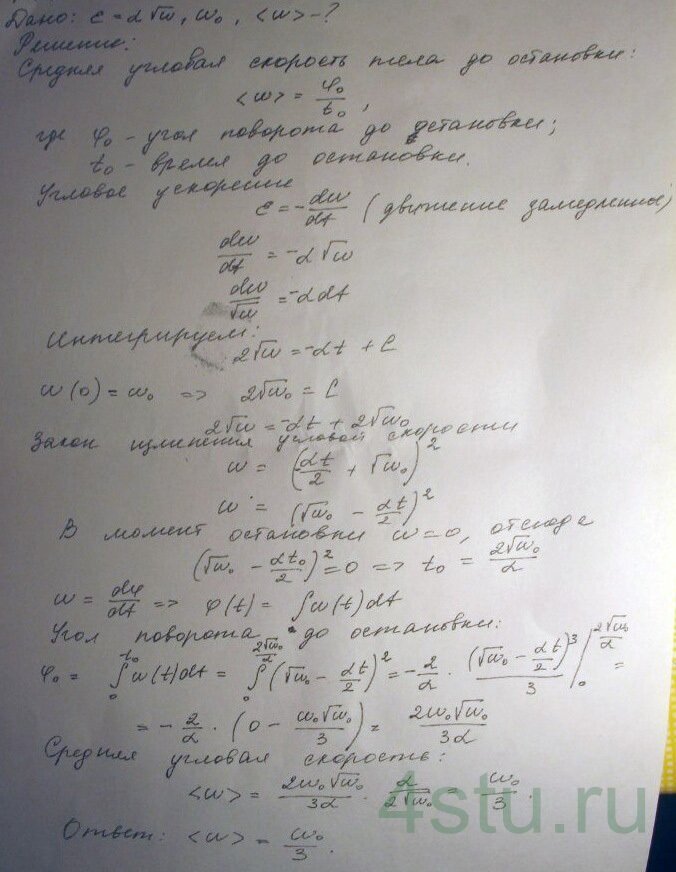 Дано: ε = α√ω, ω₀, <ω> - ?
Решение:
Средняя угловая скорость тела до остановки:
<ω> = φ₀/t₀,
где φ₀ - угол поворота до остановки;
t₀ - время до остановки.
Угловое ускорение
ε = -dω/dt (движение замедленное)
dω/dt = -α√ω
dω/√ω = -αdt
Интегрируем:
2√ω = -αt + C
ω(0) = ω₀ => 2√ω₀ = C
2√ω = -αt + 2√ω₀
Закон изменения угловой скорости
ω = (αt/2 + √ω₀)²
ω = (√ω₀ - αt/2)²
В момент остановки ω=0, отсюда
(√ω₀ - αt₀/2)² = 0 => t₀ = 2√ω₀/α
ω = dφ/dt => φ(t) = ∫ω(t)dt
Угол поворота до остановки:
φ₀ = ∫₀^t₀ ω(t)dt = ∫₀^(2√ω₀/α) (√ω₀ - αt/2)² = -2/α · (√ω₀ - αt/2)³/3 |₀^(2√ω₀/α) =
= -2/α · (0 - ω₀√ω₀/3) = 2ω₀√ω₀/3α
Средняя угловая скорость:
<ω> = 2ω₀√ω₀/3α · α/2√ω₀ = ω₀/3.
Ответ: <ω> = ω₀/3.
4stu.ru